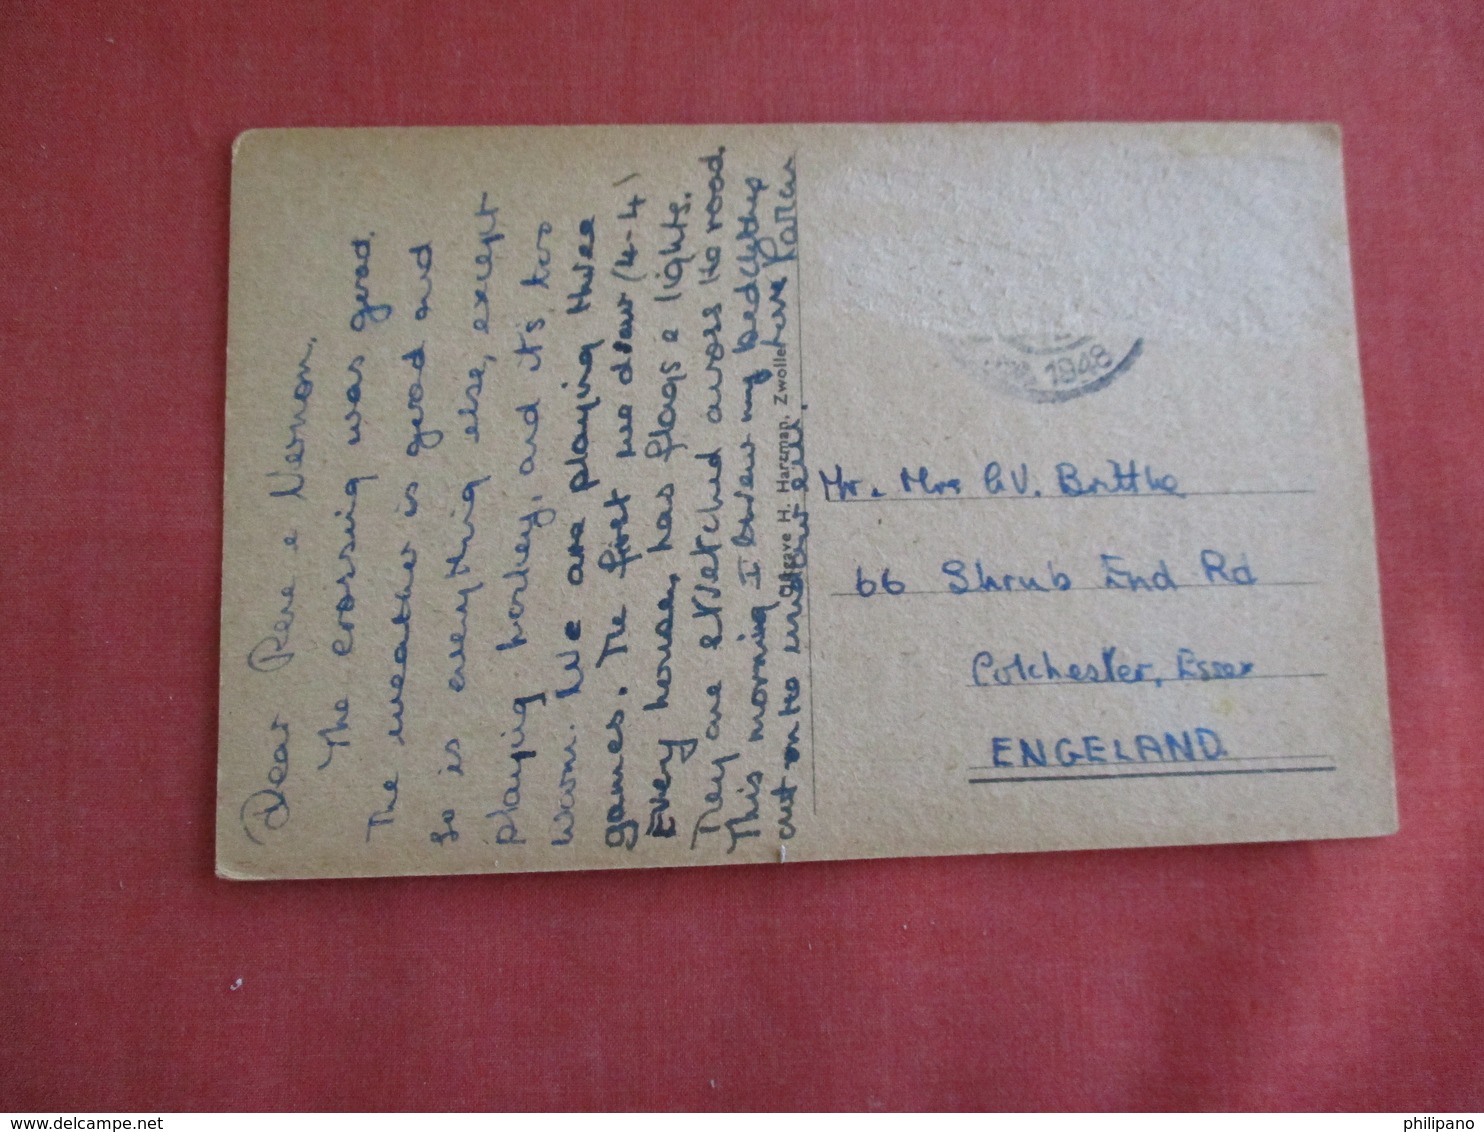 Dear Pere e Vernon,
The crossing was good.
The weather is good and
so is everything else, except
playing hockey, and it's too
warm. We are playing three
games. The first we drew (4-4)
Every house, has flags e lights.
They are stretched across the road.
This morning I threw my bedclothes
out on the window sill. Love Karen
Uitgave H. Harzman, Zwolle
1948
Mr. Mrs G.V. Brittke
66 Shrub End Rd
Colchester, Essex
ENGELAND
philipano